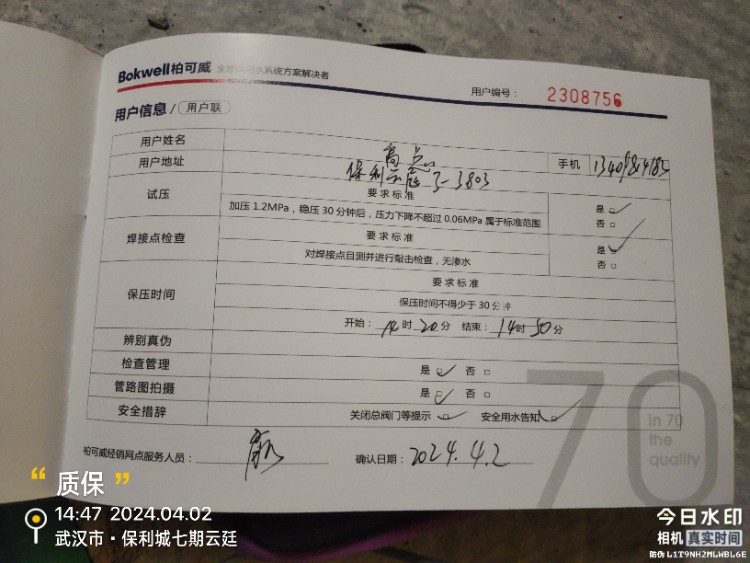 Bokwell柏可威 全球 水系统方案解决者
用户编号： 2308756
用户信息 / 用户联
用户姓名 高点
手机
用户地址 保利云庭 3-3803
试压 要求标准
加压 1.2MPa，稳压 30 分钟后，压力下降不超过 0.06MPa 属于标准范围
是 ✓
否 □
焊接点检查 要求标准
对焊接点目测并进行敲击检查，无渗水
是 ✓
否 □
保压时间 要求标准
保压时间不得少于 30 分钟
开始： 14 时 20 分 结束： 14 时 50 分
辨别真伪
检查管理 是 ✓ 否 □
管路图拍摄 是 ✓ 否 □
安全措辞 关闭总阀门等提示 ✓ 安全用水告知 ✓
70
In 70
the
quality
柏可威经销网点服务人员：
确认日期： 2024.4.2
“ 质保 ”
14:47 2024.04.02
武汉市·保利城七期云廷
今日水印
相机 真实时间
防伪 L1T9NH2MLWBL6E